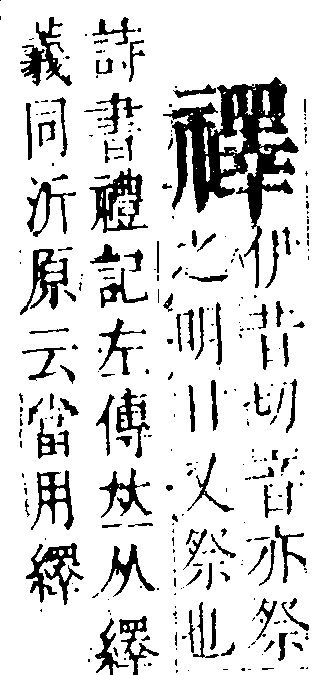 𥜃
伊昔切音亦祭
之明日又祭也
詩書禮記左傳𠀤从繹
義同沂原云當用繹